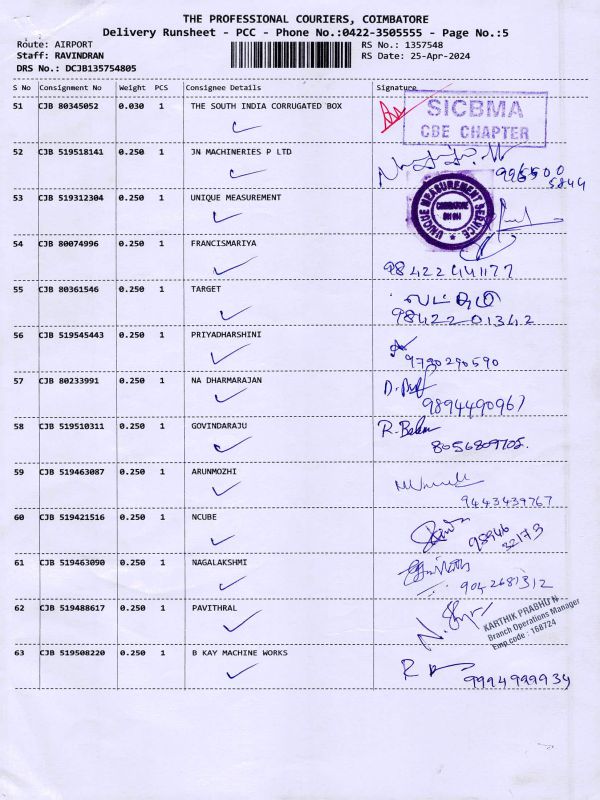 THE PROFESSIONAL COURIERS, COIMBATORE
Delivery Runsheet - PCC - Phone No.:0422-3505555 - Page No.:5
Route: AIRPORT RS No.: 1357548
Staff: RAVINDRAN RS Date: 25-Apr-2024
DRS No.: DCJB135754805
S No Consignment No Weight PCS Consignee Details Signature
51 CJB 80345052 0.030 1 THE SOUTH INDIA CORRUGATED BOX
SICBMA
CBE CHAPTER
52 CJB 519518141 0.250 1 JN MACHINERIES P LTD
53 CJB 519312304 0.250 1 UNIQUE MEASUREMENT
UNIQUE MEASUREMENT SERVICE
COIMBATORE
54 CJB 80074996 0.250 1 FRANCISMARIYA
55 CJB 80361546 0.250 1 TARGET
98422 01342
56 CJB 519545443 0.250 1 PRIYADHARSHINI
9790290590
57 CJB 80233991 0.250 1 NA DHARMARAJAN
9894490967
58 CJB 519510311 0.250 1 GOVINDARAJU
8056809705.
59 CJB 519463087 0.250 1 ARUNMOZHI
9443439767
60 CJB 519421516 0.250 1 NCUBE
98946
32173
61 CJB 519463090 0.250 1 NAGALAKSHMI
9042681312
62 CJB 519488617 0.250 1 PAVITHRAL
KARTHIK PRABHU N
Branch Operations Manager
Emp.code : 168724
63 CJB 519508220 0.250 1 B KAY MACHINE WORKS
9994999934